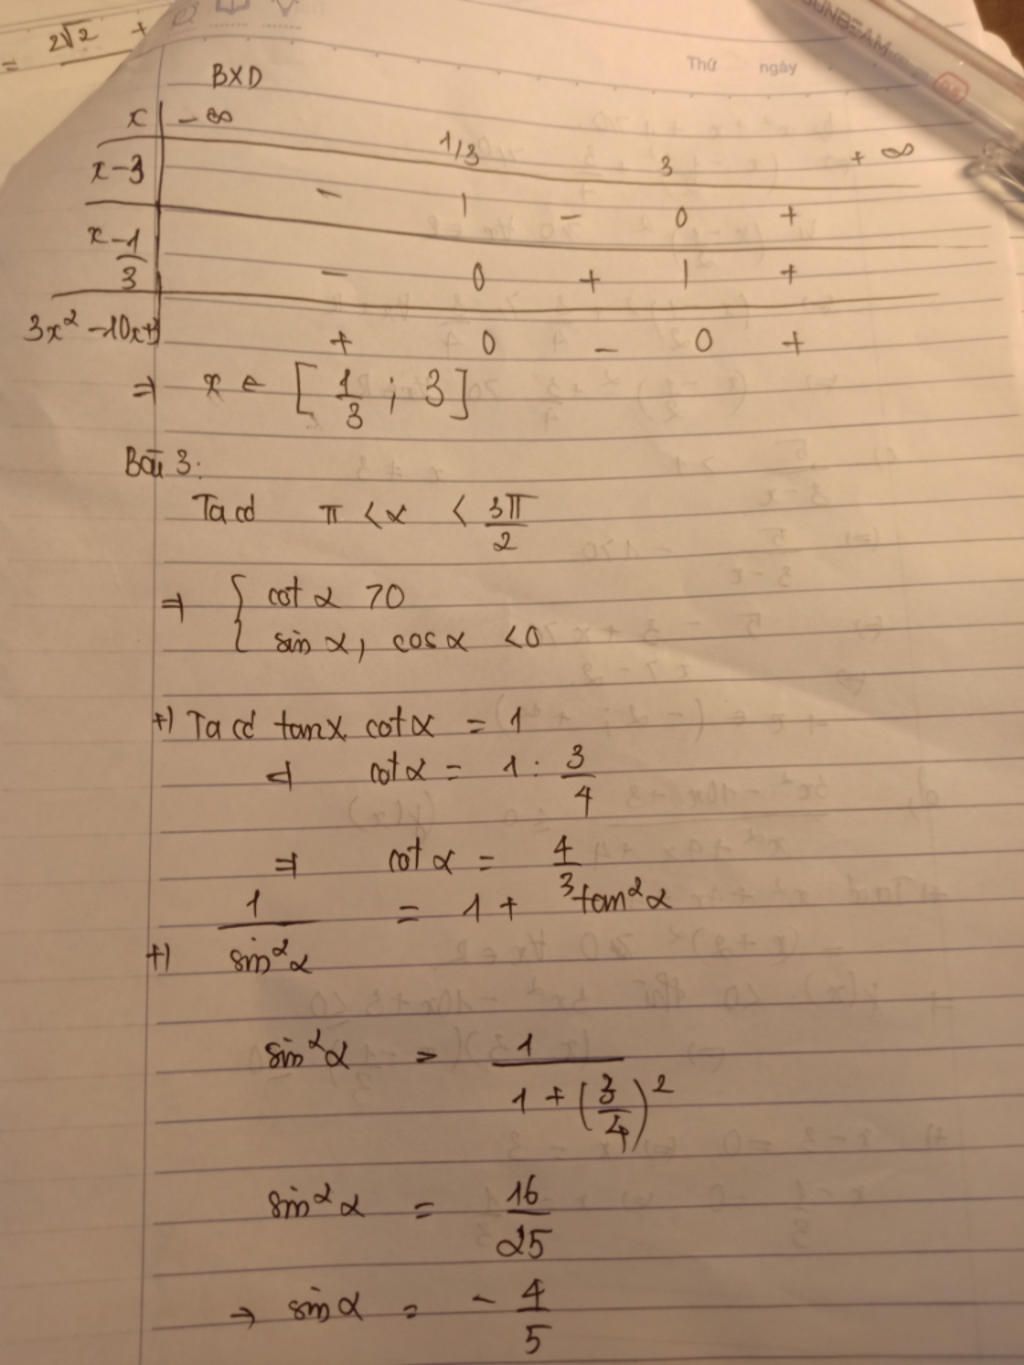 2√2 +
=
SUNBEAM
Thứ ngày
BXD
x | -∞ 1/3 3 +∞
x-3 | - | - 0 +
x-1/3 | - 0 + | +
3x² -10x+3 | + 0 - 0 +
⇒ x ∈ [1/3 ; 3]
Bài 3:
Ta có π < α < 3π/2
⇒ { cot α > 0
sin α, cos α < 0
+) Ta có tanx. cot α = 1
cot α = 1 : 3/4
⇒ cot α = 4/3
+) 1/sin²α = 1 + tan²α
sin²α = 1/(1 + (3/4)²)
sin²α = 16/25
→ sin α = - 4/5